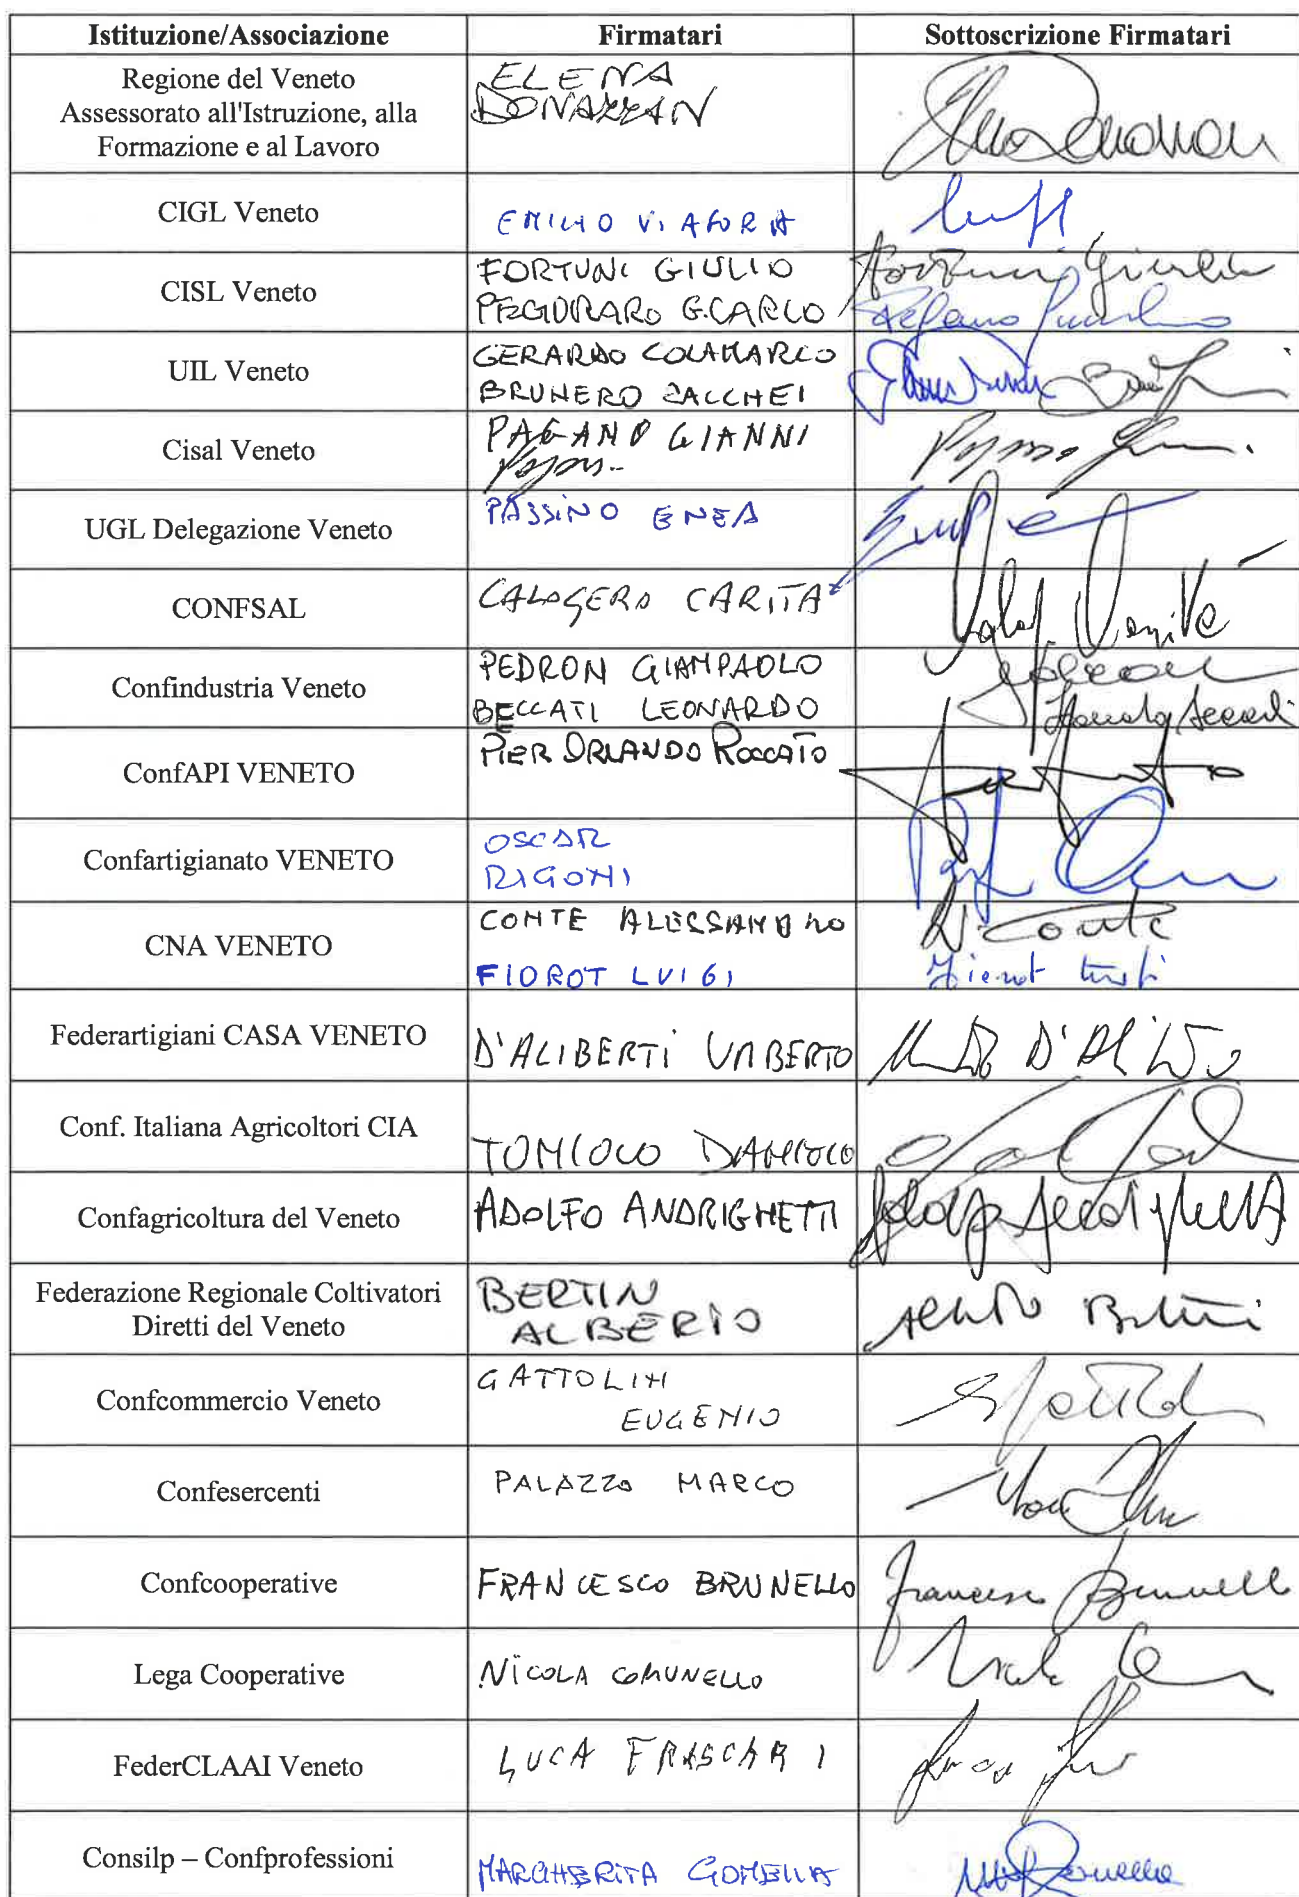 Istituzione/Associazione Firmatari Sottoscrizione Firmatari
Regione del Veneto
Assessorato all'Istruzione, alla
Formazione e al Lavoro
ELENA
DONAZZAN
CIGL Veneto
EMILIO VIAFORA
CISL Veneto
FORTUNI GIULIO
PEGORARO G.CARLO
Fortuni Giulio
UIL Veneto
GERARDO COLAMARCO
BRUNERO ZACCHEI
Cisal Veneto
PAGANO GIANNI
UGL Delegazione Veneto
PASSINO ENEA
CONFSAL
CALOGERO CARITA
Confindustria Veneto
PEDRON GIAMPAOLO
BECCATI LEONARDO
ConfAPI VENETO
PIER ORLANDO ROCCATO
Confartigianato VENETO
OSCAR
RIGONI
CNA VENETO
CONTE ALESSANDRO
FIOROT LUIGI
A. Conte
Fiorot Luigi
Federartigiani CASA VENETO
D'ALIBERTI UMBERTO
Conf. Italiana Agricoltori CIA
Confagricoltura del Veneto
ADOLFO ANDRIGHETTI
Federazione Regionale Coltivatori
Diretti del Veneto
BERTIN
ALBERTO
Confcommercio Veneto
GATTOLIN
EUGENIO
Confesercenti
PALAZZO MARCO
Confcooperative
FRANCESCO BRUNELLO
Francesco Brunello
Lega Cooperative
NICOLA COMUNELLO
FederCLAAI Veneto
LUCA FRASCARI
Consilp – Confprofessioni
MARGHERITA GONELLA